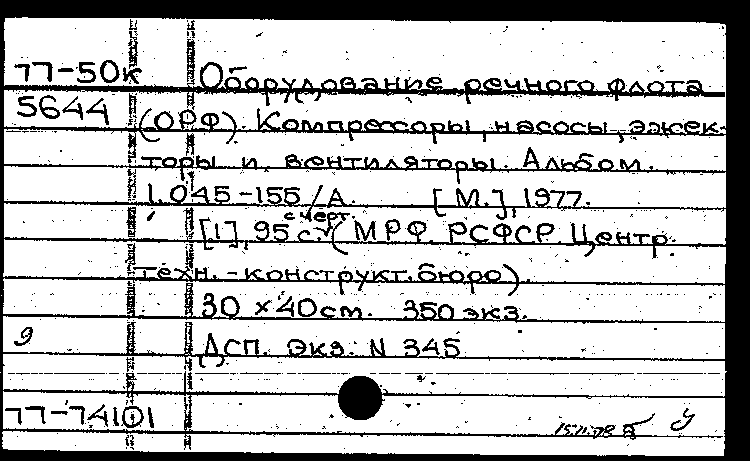 77-50к Оборудование речного флота
5644 (ОРФ). Компрессоры, насосы, эжек-
торы и вентиляторы. Альбом.
1.045-155/А. [М.], 1977.
с черт.
[1], 95 с. (МРФ РСФСР. Центр.
техн.-конструкт. бюро).
30 x 40 см. 350 экз.
9 ДСП. Экз. N 345
77-74101
15.11.78